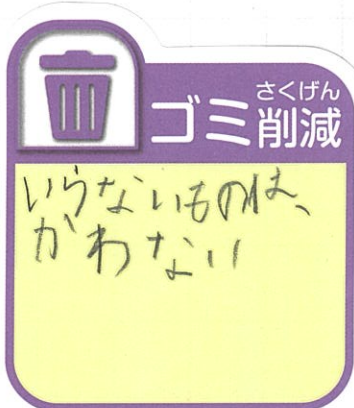 さくげん
ゴミ削減
いらないものは、
かわない